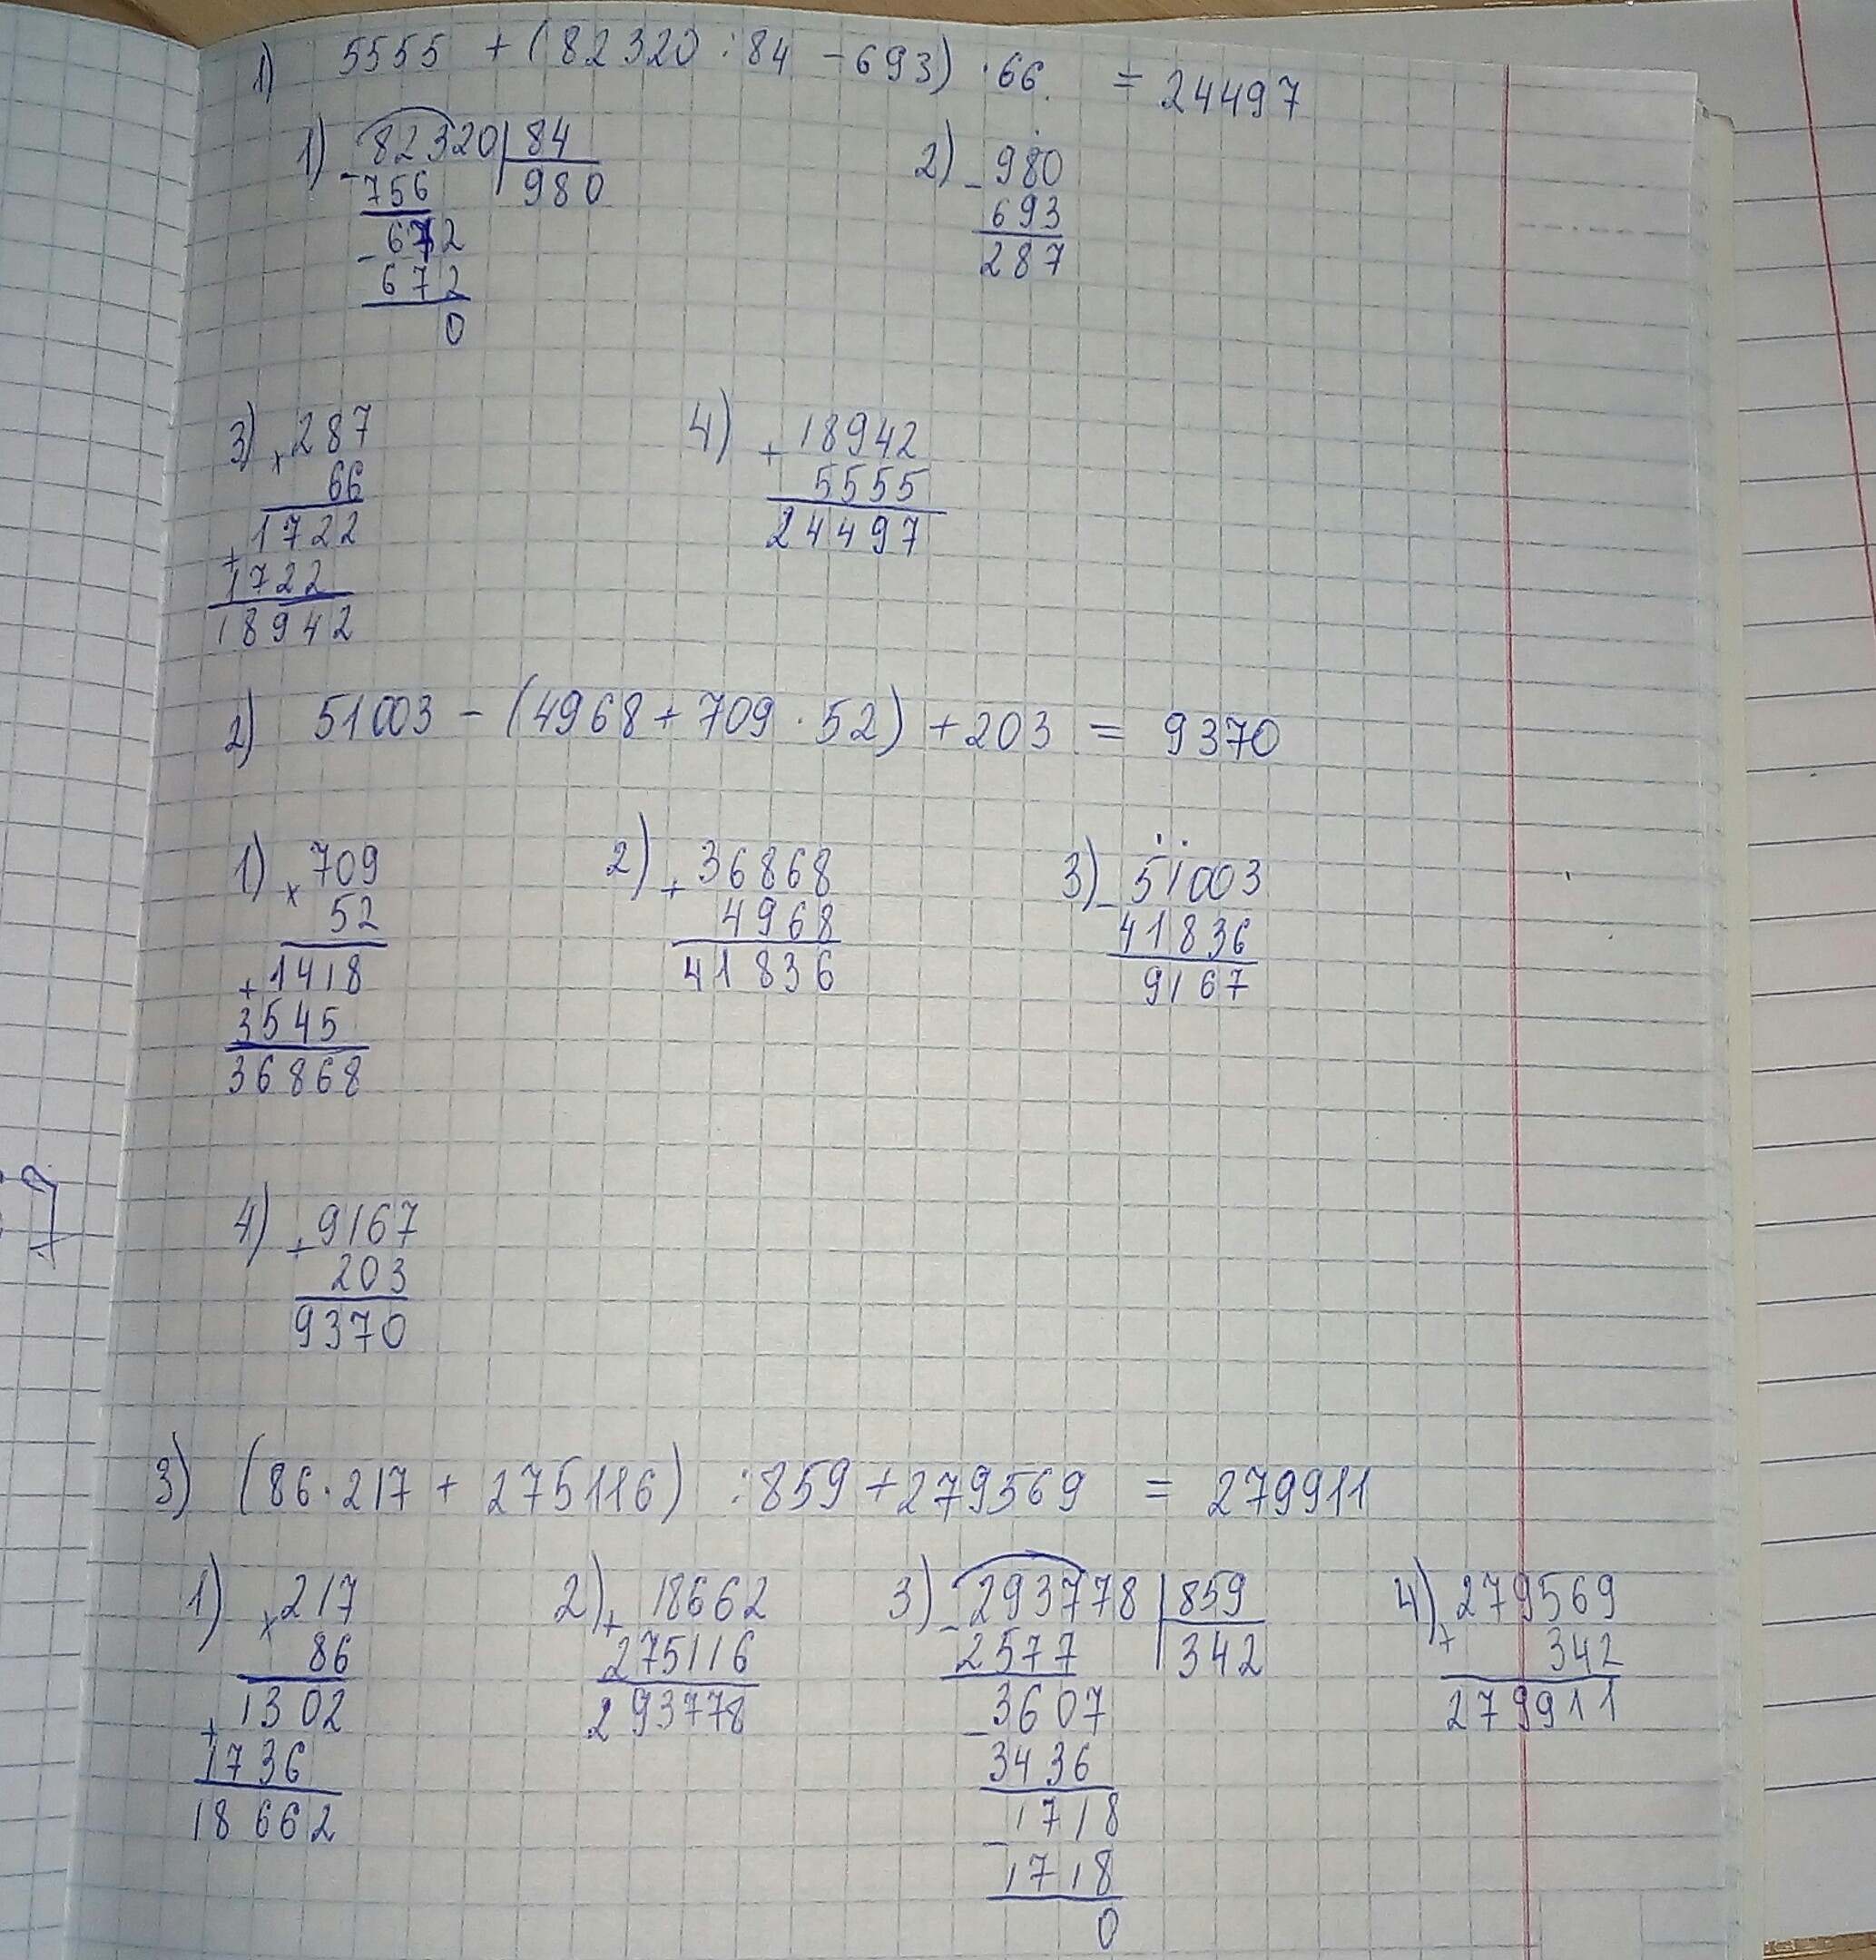 1) 5555 + (82320 : 84 - 693) · 66 = 24497
1) - 82320 | 84
2) - 980
756
980
693
- 672
287
672
0
3) x 287
4) + 18942
66
5555
+ 1722
24497
1722
18942
2) 51003 - (4968 + 709 · 52) + 203 = 9370
1) x 709
2) + 36868
3) - 51003
52
4968
41836
+ 1418
41836
9167
3545
36868
4) + 9167
203
9370
3) (86 · 217 + 275116) : 859 + 279569 = 279911
1) x 217
2) + 18662
3) - 293778 | 859
4) + 279569
86
275116
2577
342
342
1302
293778
- 3607
279911
+ 1736
3436
18662
- 1718
1718
0